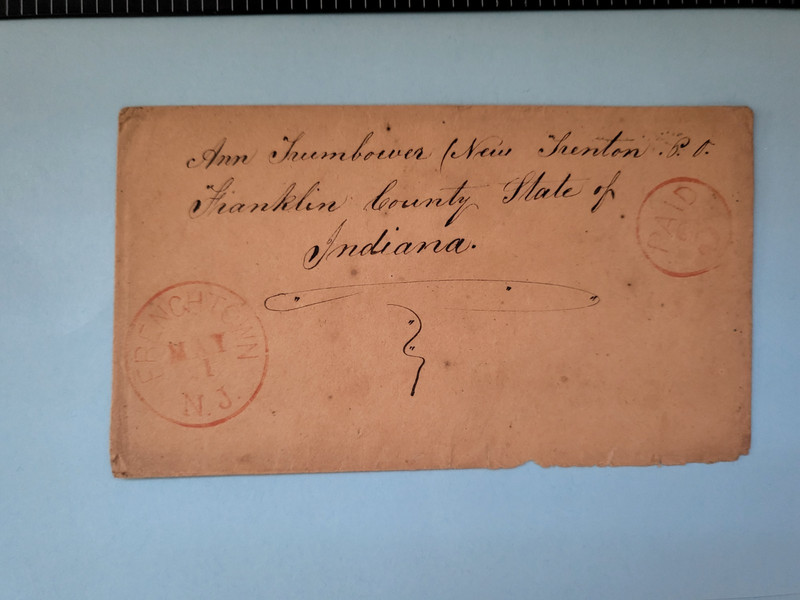 Ann Trumbower (New Trenton P. O.
Franklin County State of
Indiana.
PAID
FRENCHTOWN
MAY
1
N. J.